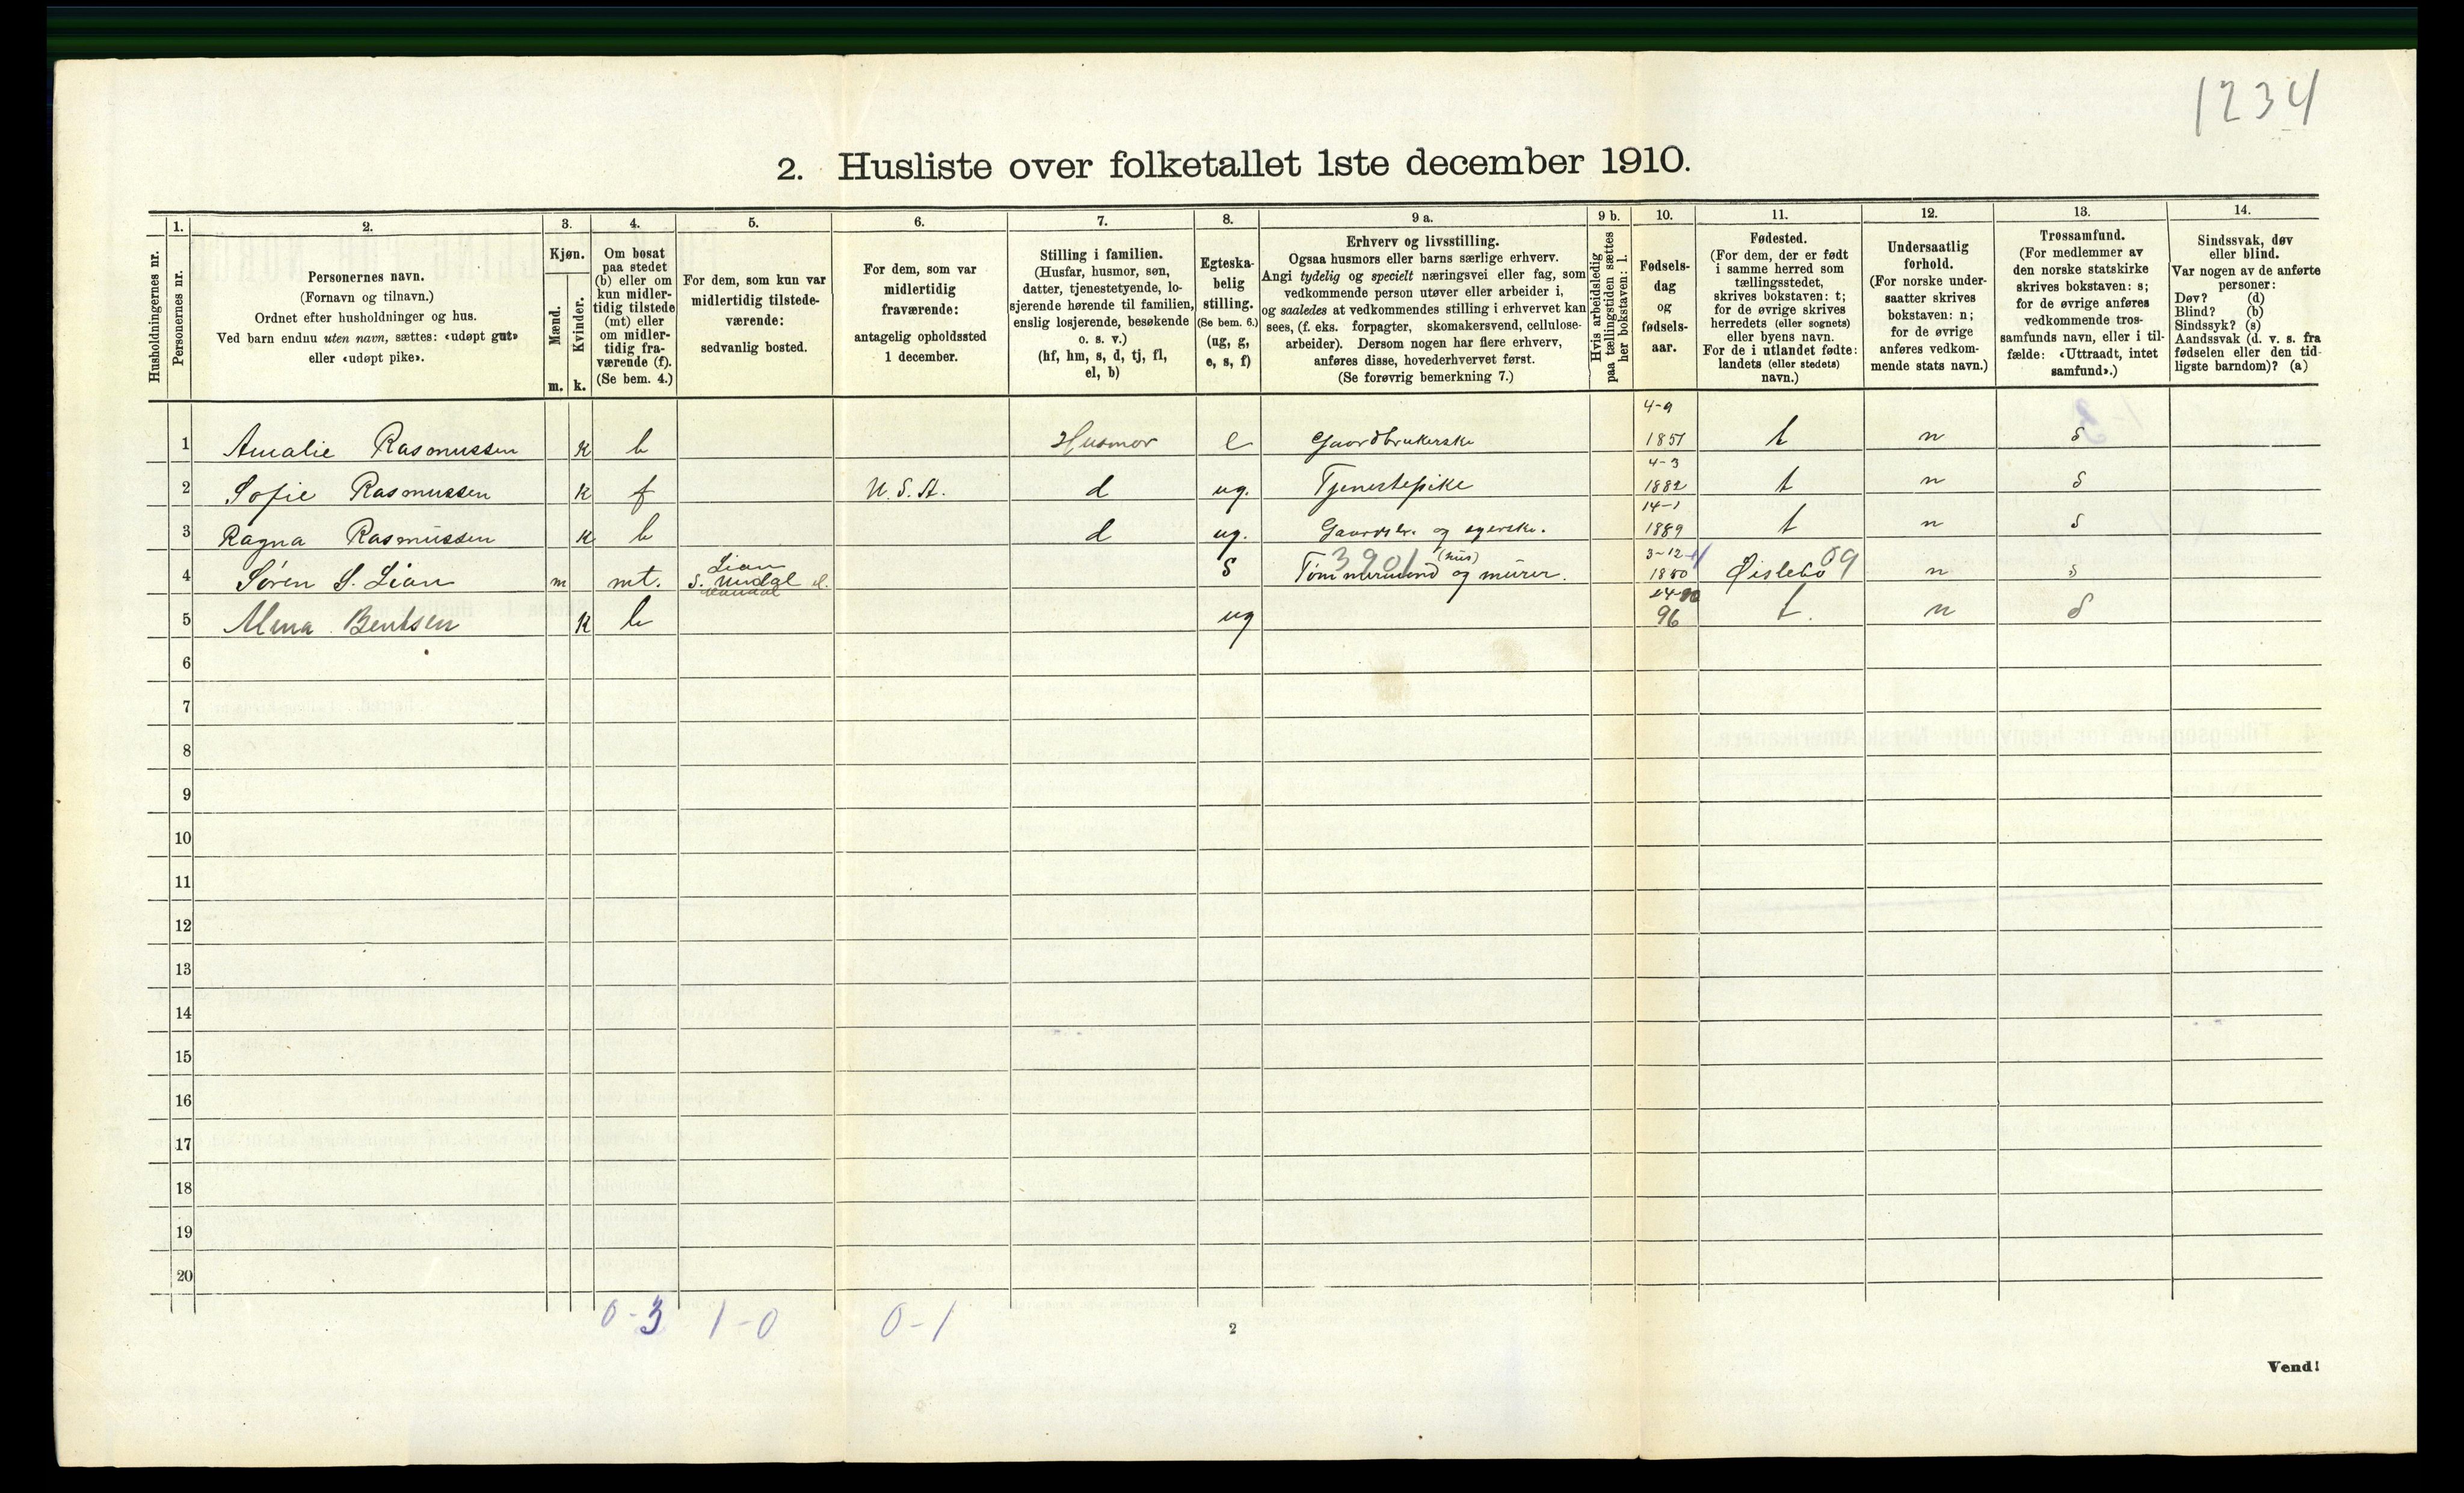 1234
2. Husliste over folketallet 1ste december 1910.
Husholdningernes nr.
1.
Personernes nr.
2.
Personernes navn.
(Fornavn og tilnavn.)
Ordnet efter husholdninger og hus.
Ved barn endnu uten navn, sættes: «udøpt gut»
eller «udøpt pike».
3.
Kjøn.
Mænd.
Kvinder.
m. k.
4.
Om bosat
paa stedet
(b) eller om
kun midler-
tidig tilstede
(mt) eller
om midler-
tidig fra-
værende (f).
(Se bem. 4.)
5.
For dem, som kun var
midlertidig tilstede-
værende:
sedvanlig bosted.
6.
For dem, som var
midlertidig
fraværende:
antagelig opholdssted
1 december.
7.
Stilling i familien.
(Husfar, husmor, søn,
datter, tjenestetyende, lo-
sjerende hørende til familien,
enslig losjerende, besøkende
o. s. v.)
(hf, hm, s, d, tj, fl,
el, b)
8.
Egteska-
belig
stilling.
(Se bem. 6.)
(ug, g,
e, s, f)
9 a.
Erhverv og livsstilling.
Ogsaa husmors eller barns særlige erhverv.
Angi tydelig og specielt næringsvei eller fag, som
vedkommende person utøver eller arbeider i,
og saaledes at vedkommendes stilling i erhvervet kan
sees, (f. eks. forpagter, skomakersvend, cellulose-
arbeider). Dersom nogen har flere erhverv,
anføres disse, hovederhvervet først.
(Se forøvrig bemerkning 7.)
9 b.
Hvis arbeidsledig
paa tællingstiden sættes
her bokstaven: l.
10.
Fødsels-
dag
og
fødsels-
aar.
11.
Fødested.
(For dem, der er født
i samme herred som
tællingsstedet,
skrives bokstaven: t;
for de øvrige skrives
herredets (eller sognets)
eller byens navn.
For de i utlandet fødte:
landets (eller stedets)
navn.)
12.
Undersaatlig
forhold.
(For norske under-
saatter skrives
bokstaven: n;
for de øvrige
anføres vedkom-
mende stats navn.)
13.
Trossamfund.
(For medlemmer av
den norske statskirke
skrives bokstaven: s;
for de øvrige anføres
vedkommende tros-
samfunds navn, eller i til-
fælde: «Uttraadt, intet
samfund».)
14.
Sindssvak, døv
eller blind.
Var nogen av de anførte
personer:
Døv? (d)
Blind? (b)
Sindssyk? (s)
Aandssvak (d. v. s. fra
fødselen eller den tid-
ligste barndom)? (a)
1 Amalie Rasmussen K b Husmor e Gaardbrukerske 4-9 1851 t n s
2 Sofie Rasmussen K f U.S.A. d ug. Tjenestepike 4-3 1882 t n s
3 Ragna Rasmussen K b d ug. Gaardsbr. og syerske. 14-1 1889 t n s
4 Søren S. Lian m mt. Lian S. Undal Mandal S Tømmermend (hus) og murer. 3901 3-12 1850 Øislebø 09 n s
5 Alma Bentsen K b ug 96 t. n s
6
7
8
9
10
11
12
13
14
15
16
17
18
19
20
0-3 1-0 0-1
2
Vend!